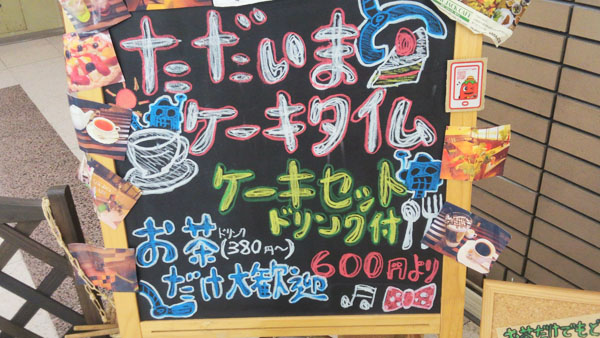 ただいま
ケーキタイム
ケーキセット
ドリンク付
600円より
お茶(380円〜)
ドリンク
だけ大歓迎
お茶だけでもど